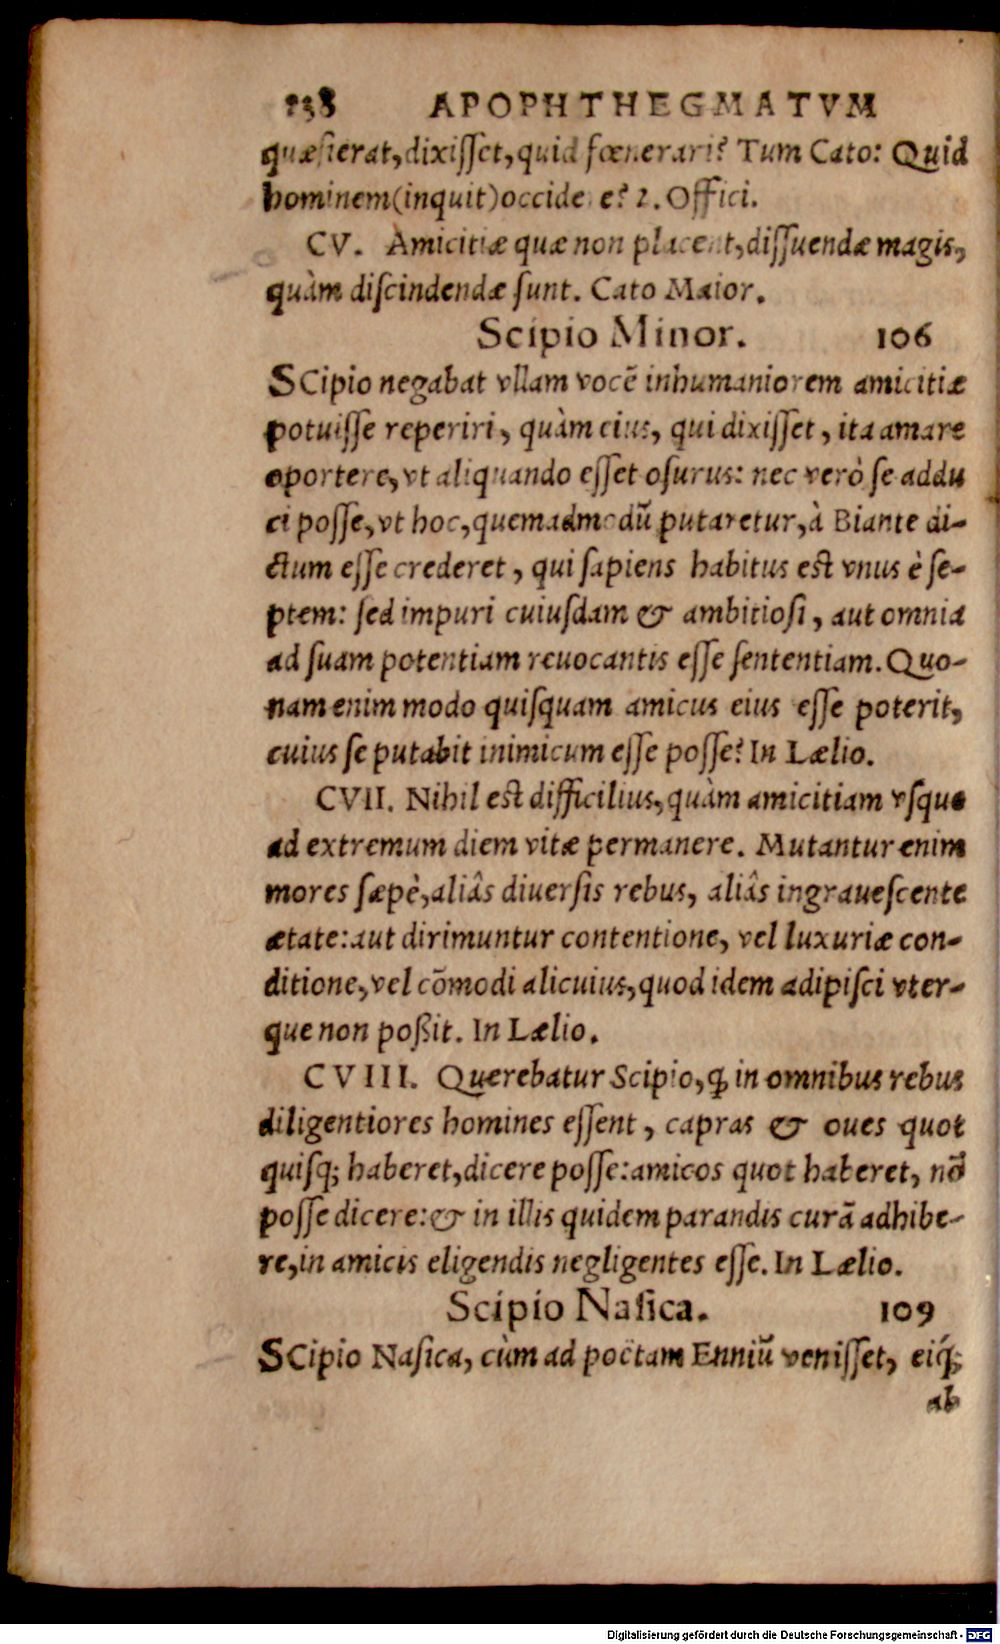 138 APOPHTHEGMATVM
quæſierat, dixiſſet, quid fœnerari? Tum Cato: Quid
hominem (inquit) occidere? 2. Offici.
CV. Amicitiæ quæ non placent, diſſuendæ magis,
quàm diſcindendæ ſunt. Cato Maior.
Scipio Minor. 106
SCipio negabat vllam vocẽ inhumaniorem amicitiæ
potuiſſe reperiri, quàm eius, qui dixiſſet, ita amare
oportere, vt aliquando eſſet oſurus: nec verò ſe addu
ci poſſe, vt hoc, quemadmodũ putaretur, à Biante di-
ctum eſſe crederet, qui ſapiens habitus eſt vnus è ſe-
ptem: ſed impuri cuiuſdam & ambitioſi, aut omnia
ad ſuam potentiam reuocantis eſſe ſententiam. Quo-
nam enim modo quiſquam amicus eius eſſe poterit,
cuius ſe putabit inimicum eſſe poſſe? In Lælio.
CVII. Nihil eſt difficilius, quàm amicitiam vſque
ad extremum diem vitæ permanere. Mutantur enim
mores ſæpè, aliâs diuerſis rebus, aliâs ingraueſcente
ætate: aut dirimuntur contentione, vel luxuriæ con-
ditione, vel cõmodi alicuius, quod idem adipiſci vter-
que non poßit. In Lælio.
CVIII. Querebatur Scipio, ꝙ in omnibus rebus
diligentiores homines eſſent, capras & oues quot
quiſq; haberet, dicere poſſe: amicos quot haberet, nõ
poſſe dicere: & in illis quidem parandis curã adhibe-
re, in amicis eligendis negligentes eſſe. In Lælio.
Scipio Naſica. 109
SCipio Naſica, cùm ad poëtam Enniũ veniſſet, eiq́;
ab
Digitalisierung gefördert durch die Deutsche Forschungsgemeinschaft - DFG